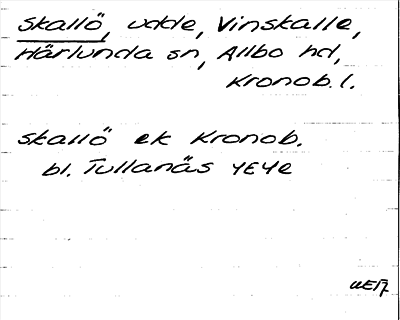 Skallö, udde, Vinskalle,
Härlunda sn, Allbo hd,
Kronob. l.
Skallö ek Kronob.
bl. Tullanäs 4E4e